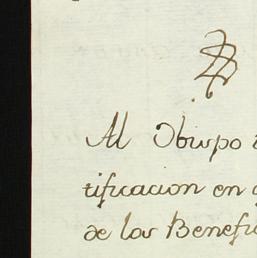 Al Obispo
tificacion en
de los Benefi